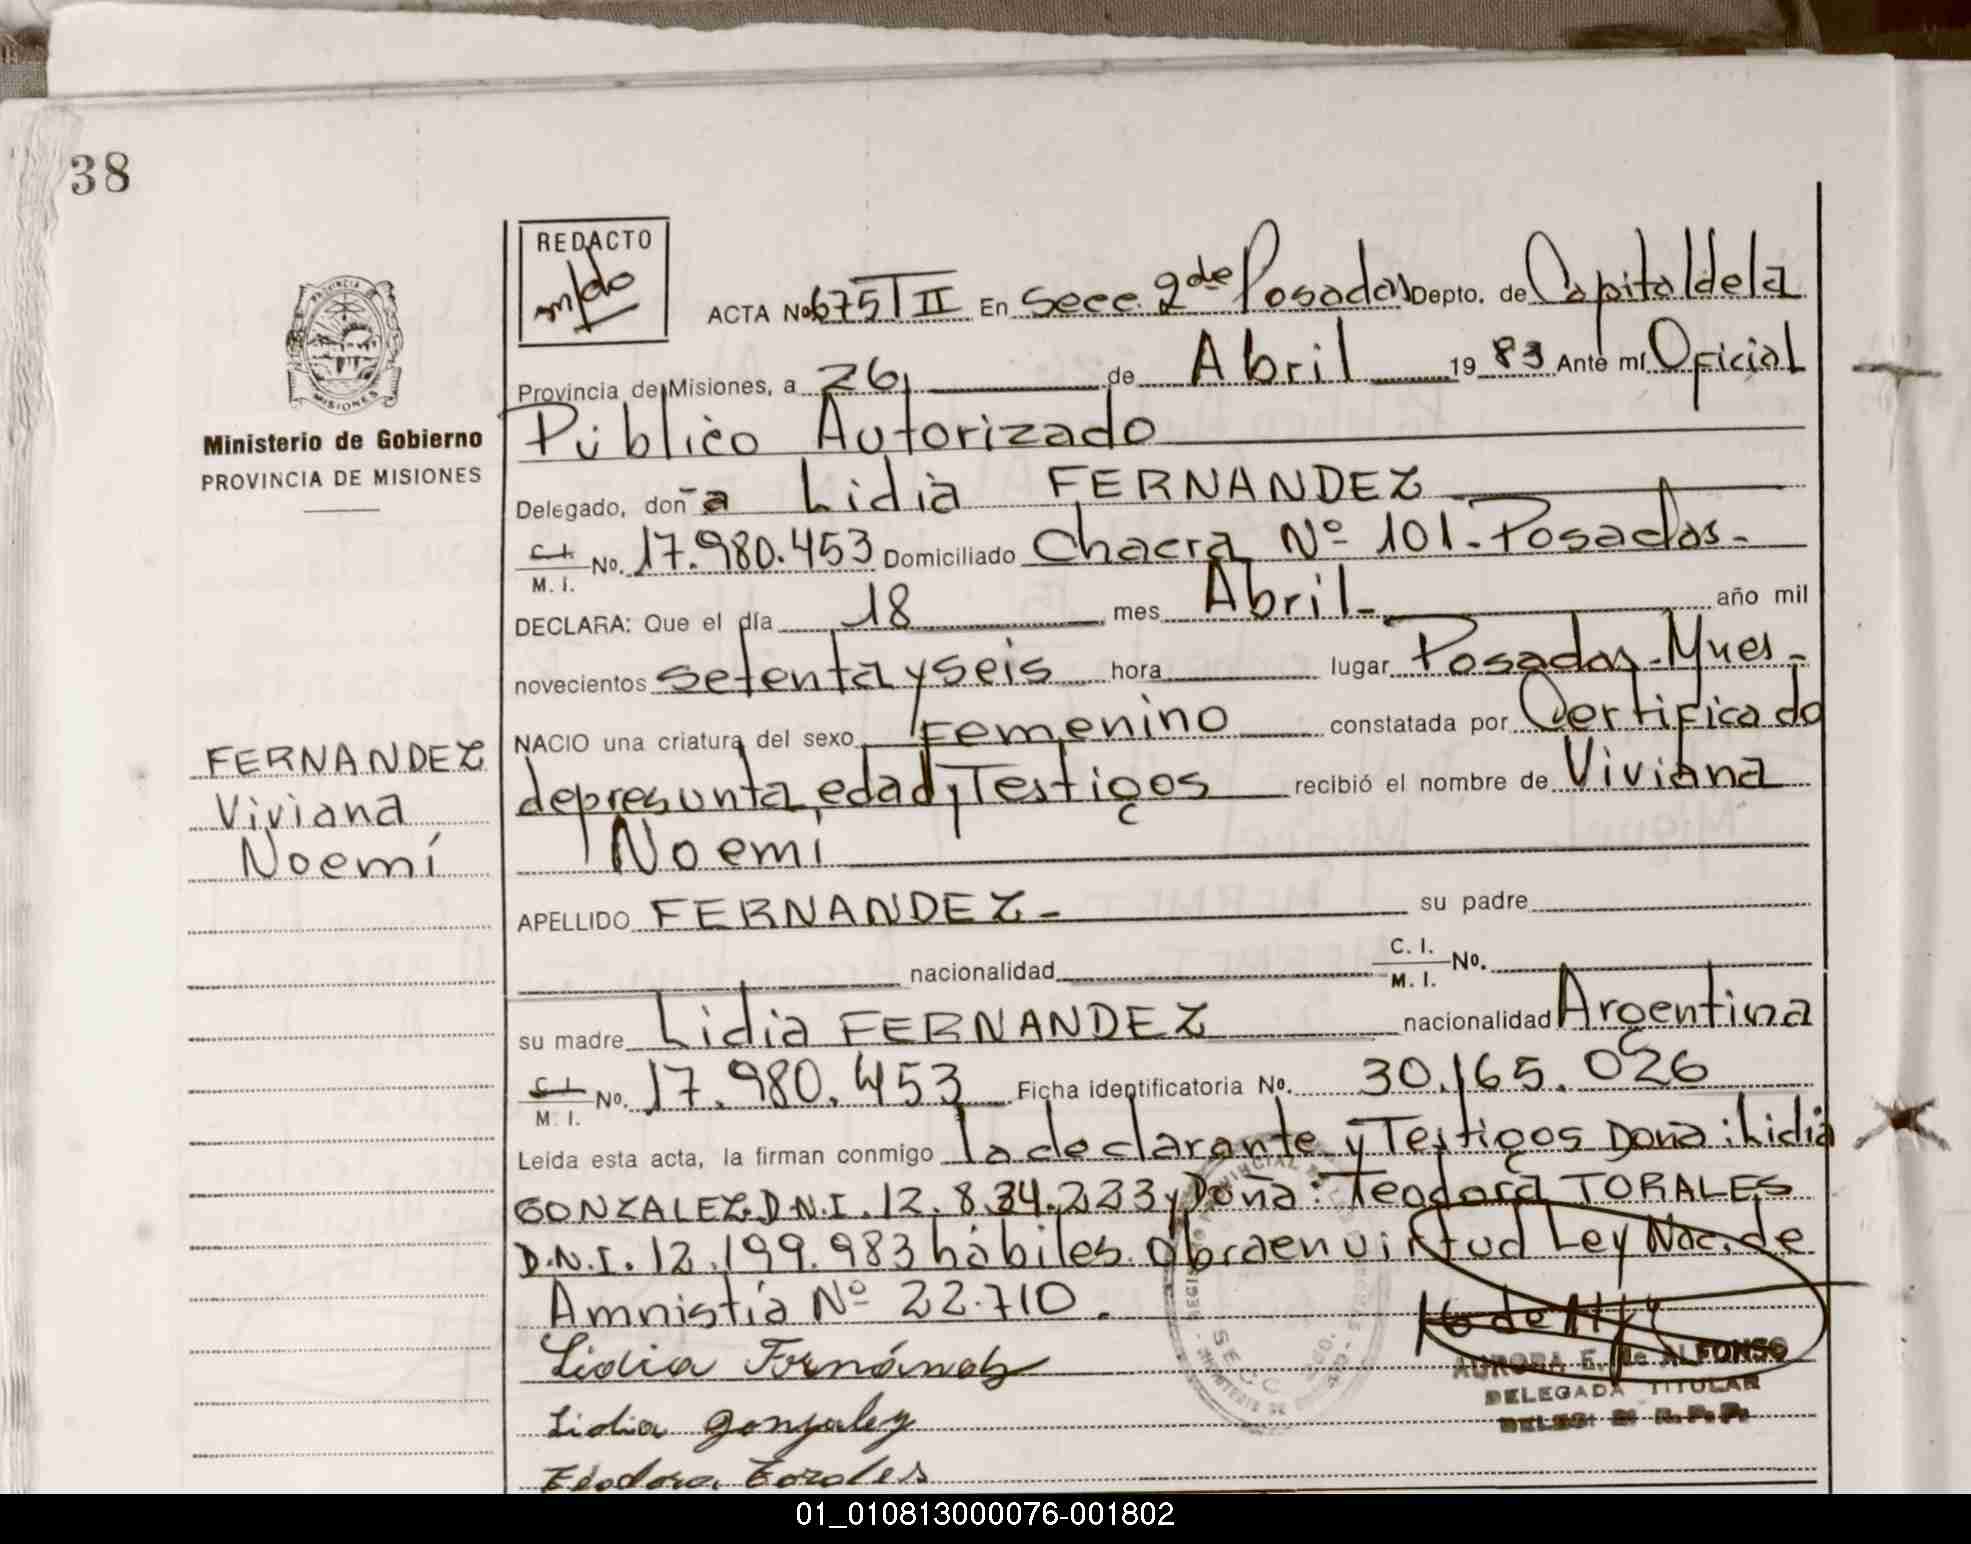 38
REDACTO
ACTA No 675 T II En Secc. 2da de Posadas Depto. de Capital de la
Provincia de Misiones, a 26 de Abril 1983 Ante mí Oficial
Público Autorizado
Ministerio de Gobierno
PROVINCIA DE MISIONES
Delegado, don a Lidia FERNANDEZ
C. I.
M. I. No. 17.980.453 Domiciliado Chacra Nº 101 - Posadas -
DECLARA: Que el día 18 mes Abril - año mil
novecientos setenta y seis hora lugar Posadas - Mnes -
NACIO una criatura del sexo Femenino constatada por Certificado
de presunta edad y Testigos recibió el nombre de Viviana
Noemi
FERNANDEZ
Viviana
Noemí
APELLIDO FERNANDEZ - su padre
nacionalidad C. I.
M. I. No.
su madre Lidia FERNANDEZ nacionalidad Argentina
C. I.
M. I. No. 17.980.453 Ficha identificatoria No. 30.165.026
Leida esta acta, la firman conmigo la declarante y Testigos Doña: Lidia
GONZALEZ D.N.I. 12.834.223 y Doña: Teodora TORALES
D.N.I. 12.199.983 hábiles. Obra en virtud Ley Nac. de
Amnistía Nº 22.710.
Lidia Fernández
Lidia Gonzalez
Teodora Torales
AURORA E. de ALFONSO
DELEGADA TITULAR
01_010813000076-001802